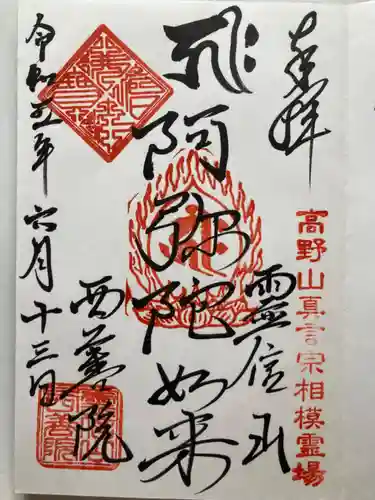 奉拝
高野山真言宗相模霊場
阿弥陀如来
靈信山
西善院
令和五年六月十三日